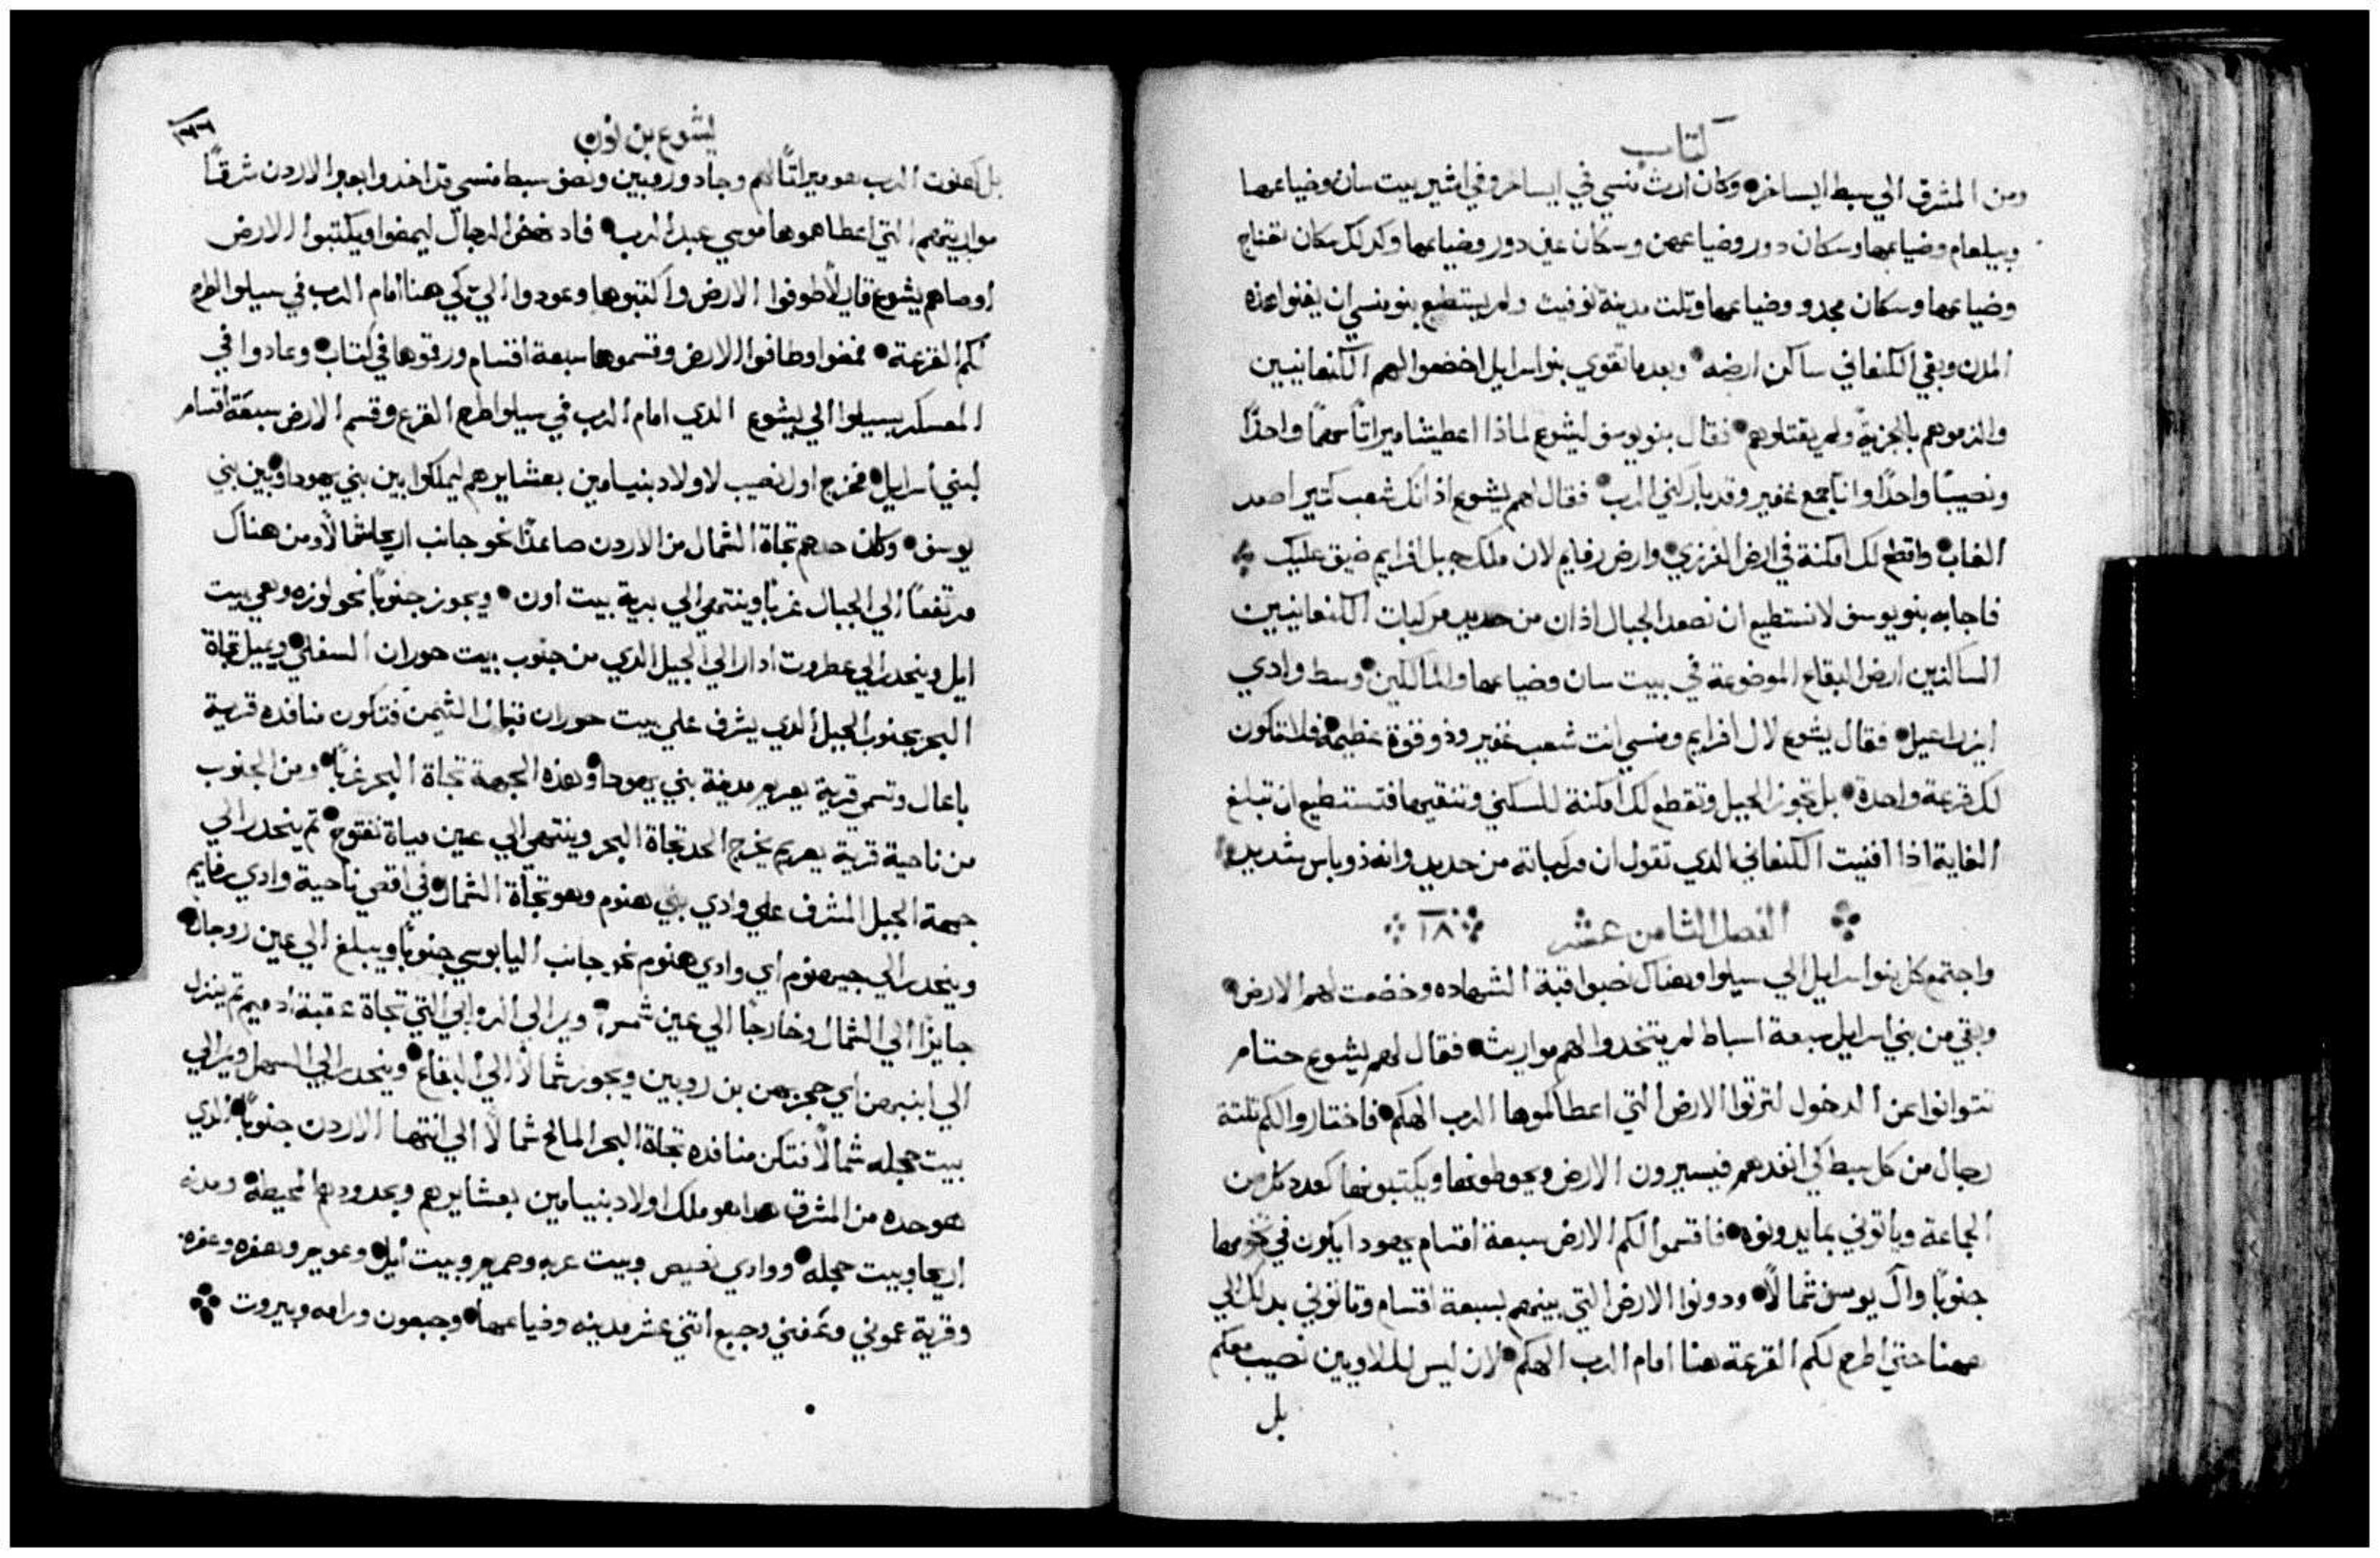 كتاب
ومن المشرق الي سبط ايساخر وكان ارث منسي في ايساخر وفي اشير بيت سان وضياعها
ويبلعام وضياعها وسكان دور وضياعهن وسكان عين دور وضياعها وكدلك سكان تعناج
وضياعها وسكان مجدو وضياعها وتلت مدينة نوفيت ولم يستطيع بنو منسي ان يفنوا هذه
المدن وبقي الكنعاني ساكن ارضه وبعد ما تقوي بنو اسرايل اخضعوا لهم الكنعانيين
والزموهم بالجزية ولم يقتلوهم فقال بنو يوسف ليشوع لماذا اعطيتنا ميراتًا سهمًا واحدًا
ونصيبًا واحدًا وانا جمع غفير وقد باركني الرب فقال لهم يشوع اذ انك شعب كتير اصعد
الغاب واقطع لك امكنة في ارض الفرزي وارض رفايم لان ملك جبل افرايم ضيق عليك
فاجابه بنو يوسف لا نستطيع ان نصعد الجبال اذ ان من حديد مركبات الكنعانيين
الساكنين ارض البقاع الموضوعة في بيت سان وضياعها والمالكين وسط وادي
ايزراعيل فقال يشوع لال افرايم ومنسي انت شعب غفير وذو قوة عظيمة فلا تكون
لك قرعة واحدة بل تجوز الجبيل وتقطع لك امكنة للسكني وتنقيها فتستطيع ان تبلغ
الغاية اذا افنيت الكنعاني الدي تقول ان مركباته من حديد وانه ذو باس شديد
الفصل الثامن عشر ١٨
واجتمع كل بنو اسرايل الي سيلوا وهناك نصبوا قبة الشهاده وخضعت لهم الارض
وبقي من بني اسرايل سبعة اسباط لم يتخدوا لهم مواريث فقال لهم يشوع حتام
تتوانوا عن الدخول لترتوا الارض التي اعطاكموها الرب الهكم فاختاروا لكم تلتة
رجال من كل سبط كي انفدهم فيسيرون الارض ويحوطونها ويكتبونها كعدد كل من
الجاعة وياتوني بما يدونوه فاقسموا لكم الارض سبعة اقسام يهودا يكون في تخومها
جنوبًا وآل يوسف شمالًا ودونوا الارض التي بينهم بسبعة اقسام وتاتوني بدلك الي
ههنا حتي اطرح لكم القرعة هنا امام الرب الهكم لان ليس لللاويين نصيب معكم
بل
يشوع بن نون
بل كهنوت الرب هو ميراتًا لهم وجاد وروبين ونصف سبط منسي قد اخدوا بعبر الاردن شرقًا
مواريتهم التي اعطاهموها موسي عبد الرب فاد نهض الرجال ليمضوا ويكتبوا الارض
اوصاهم يشوع قايلًا طوفوا الارض واكتبوها وعودوا الي كي هنا امام الرب في سيلوا اطرح
لكم القرعة فمضوا وطافوا الارض وقسموها سبعة اقسام ورقموها في كتاب وعادوا في
المعسكر بسيلوا الي يشوع الدي امام الرب في سيلوا طرح القرع وقسم الارض سبعة اقسام
لبني اسرايل فخرج اول نصيب لاولاد بنيامين بعشايرهم ليملكوا بين بني يهودا وبين بني
يوسف وكان حدهم تجاة الشمال من الاردن صاعدًا نحو جانب اريحا شمالًا ومن هناك
مرتفعًا الي الجبال غربًا وينتهي الي برية بيت اون ويجوز جنوبًا نحو لوزه وهي بيت
ايل وينحدر الي عطروت ادار الي الجبيل الدي من جنوب بيت حوران السفلي ويميل تجاة
البحر بجنوب الجبيل الدي يشرف علي بيت حوران قبال التيمن فتكون منافده قرية
باعال وتسمي قرية يعريم مدينة بني يهودا وهذه الجهة تجاة البحر غربًا ومن الجنوب
من ناحية قرية يعريم يخرج الحد تجاة البحر وينتهي الي عين مياة نفتوح تم ينحدر الي
جهة الجبل المشرف علي وادي بني هنوم وهو تجاة الشمال في اقصي ناحية وادي رفايم
وينحدر الي جيهنوم اي وادي هنوم نحو جانب اليابوسي جنوبًا ويبلغ الي عين روجال
جايزًا الي الشمال وخارجًا الي عين شمس ويمر الي الروابي التي تجاة عقبة ادميم تم ينزل
الي ابنبهن اي حجر بهن بن روبين ويجوز شمالًا الي البقاع وينحدر الي السهل ويمر الي
بيت حجله شمالًا فتكن منافده تجاة البحر المالح شمالًا الي انتها الاردن جنوبًا الدي
هو حده من المشرق هدا هو ملك اولاد بنيامين بعشايرهم وبحدودهم المحيطة ومدنه
اريحا وبيت حجله ووادي نصيص وبيت عربه وصمريم وبيت ايل وعويم وهفره وعفره
وقرية عموني وعفني وجبع اتني عشر مدينه وضياعها وجبعون ورامه وبيروت